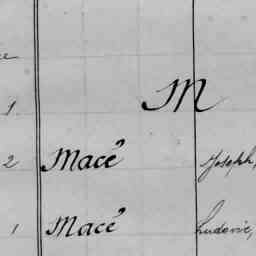 M
1
2 Macé Joseph,
1 Macé Ludovic,